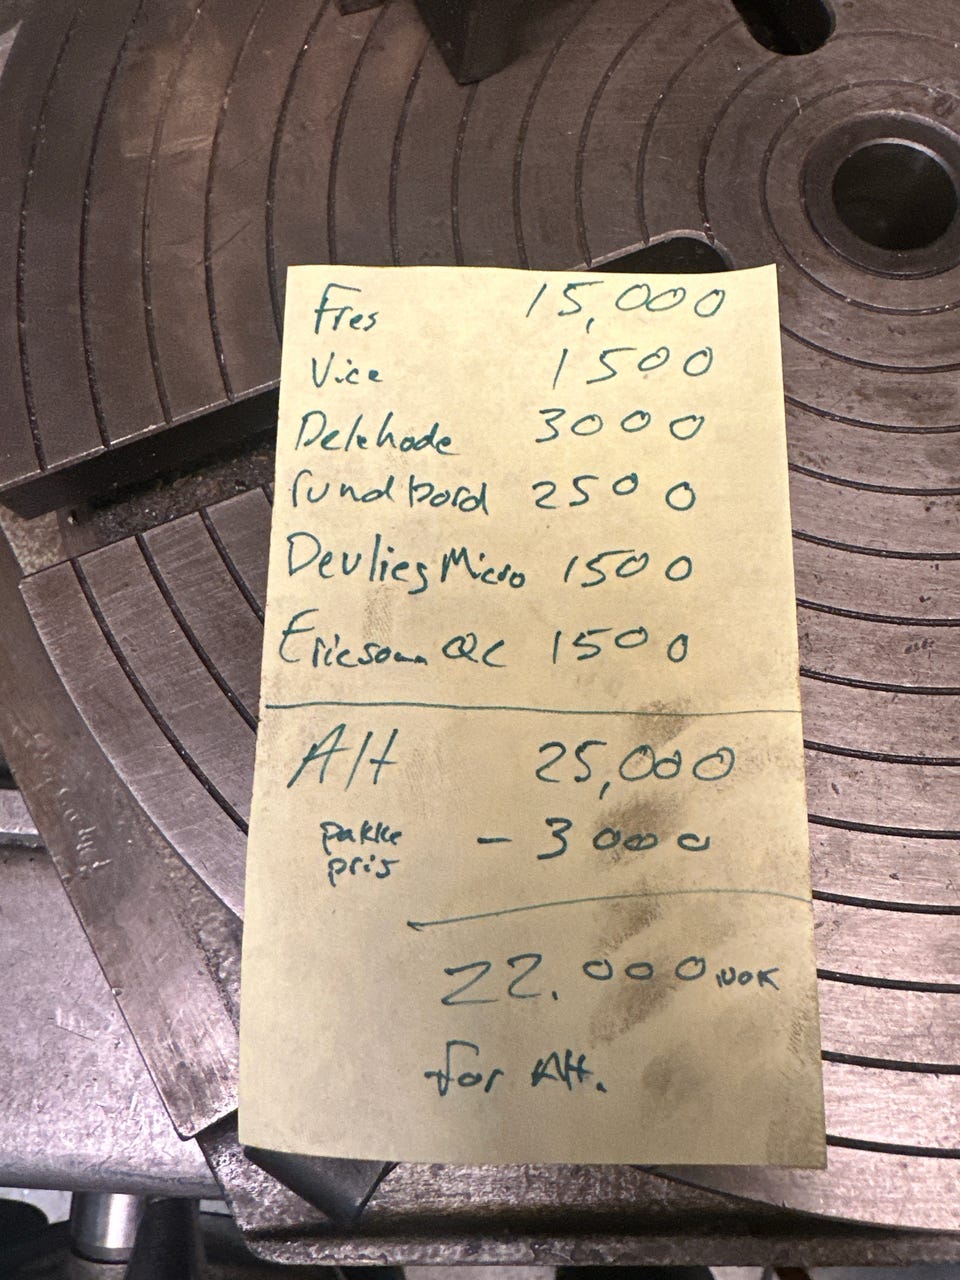 Fres 15,000
Vice 1500
Delehode 3000
rundbord 2500
Devlieg Micro 1500
Ericson QC 1500
Alt 25,000
pakke pris - 3000
22.000 NOK
for Alt.